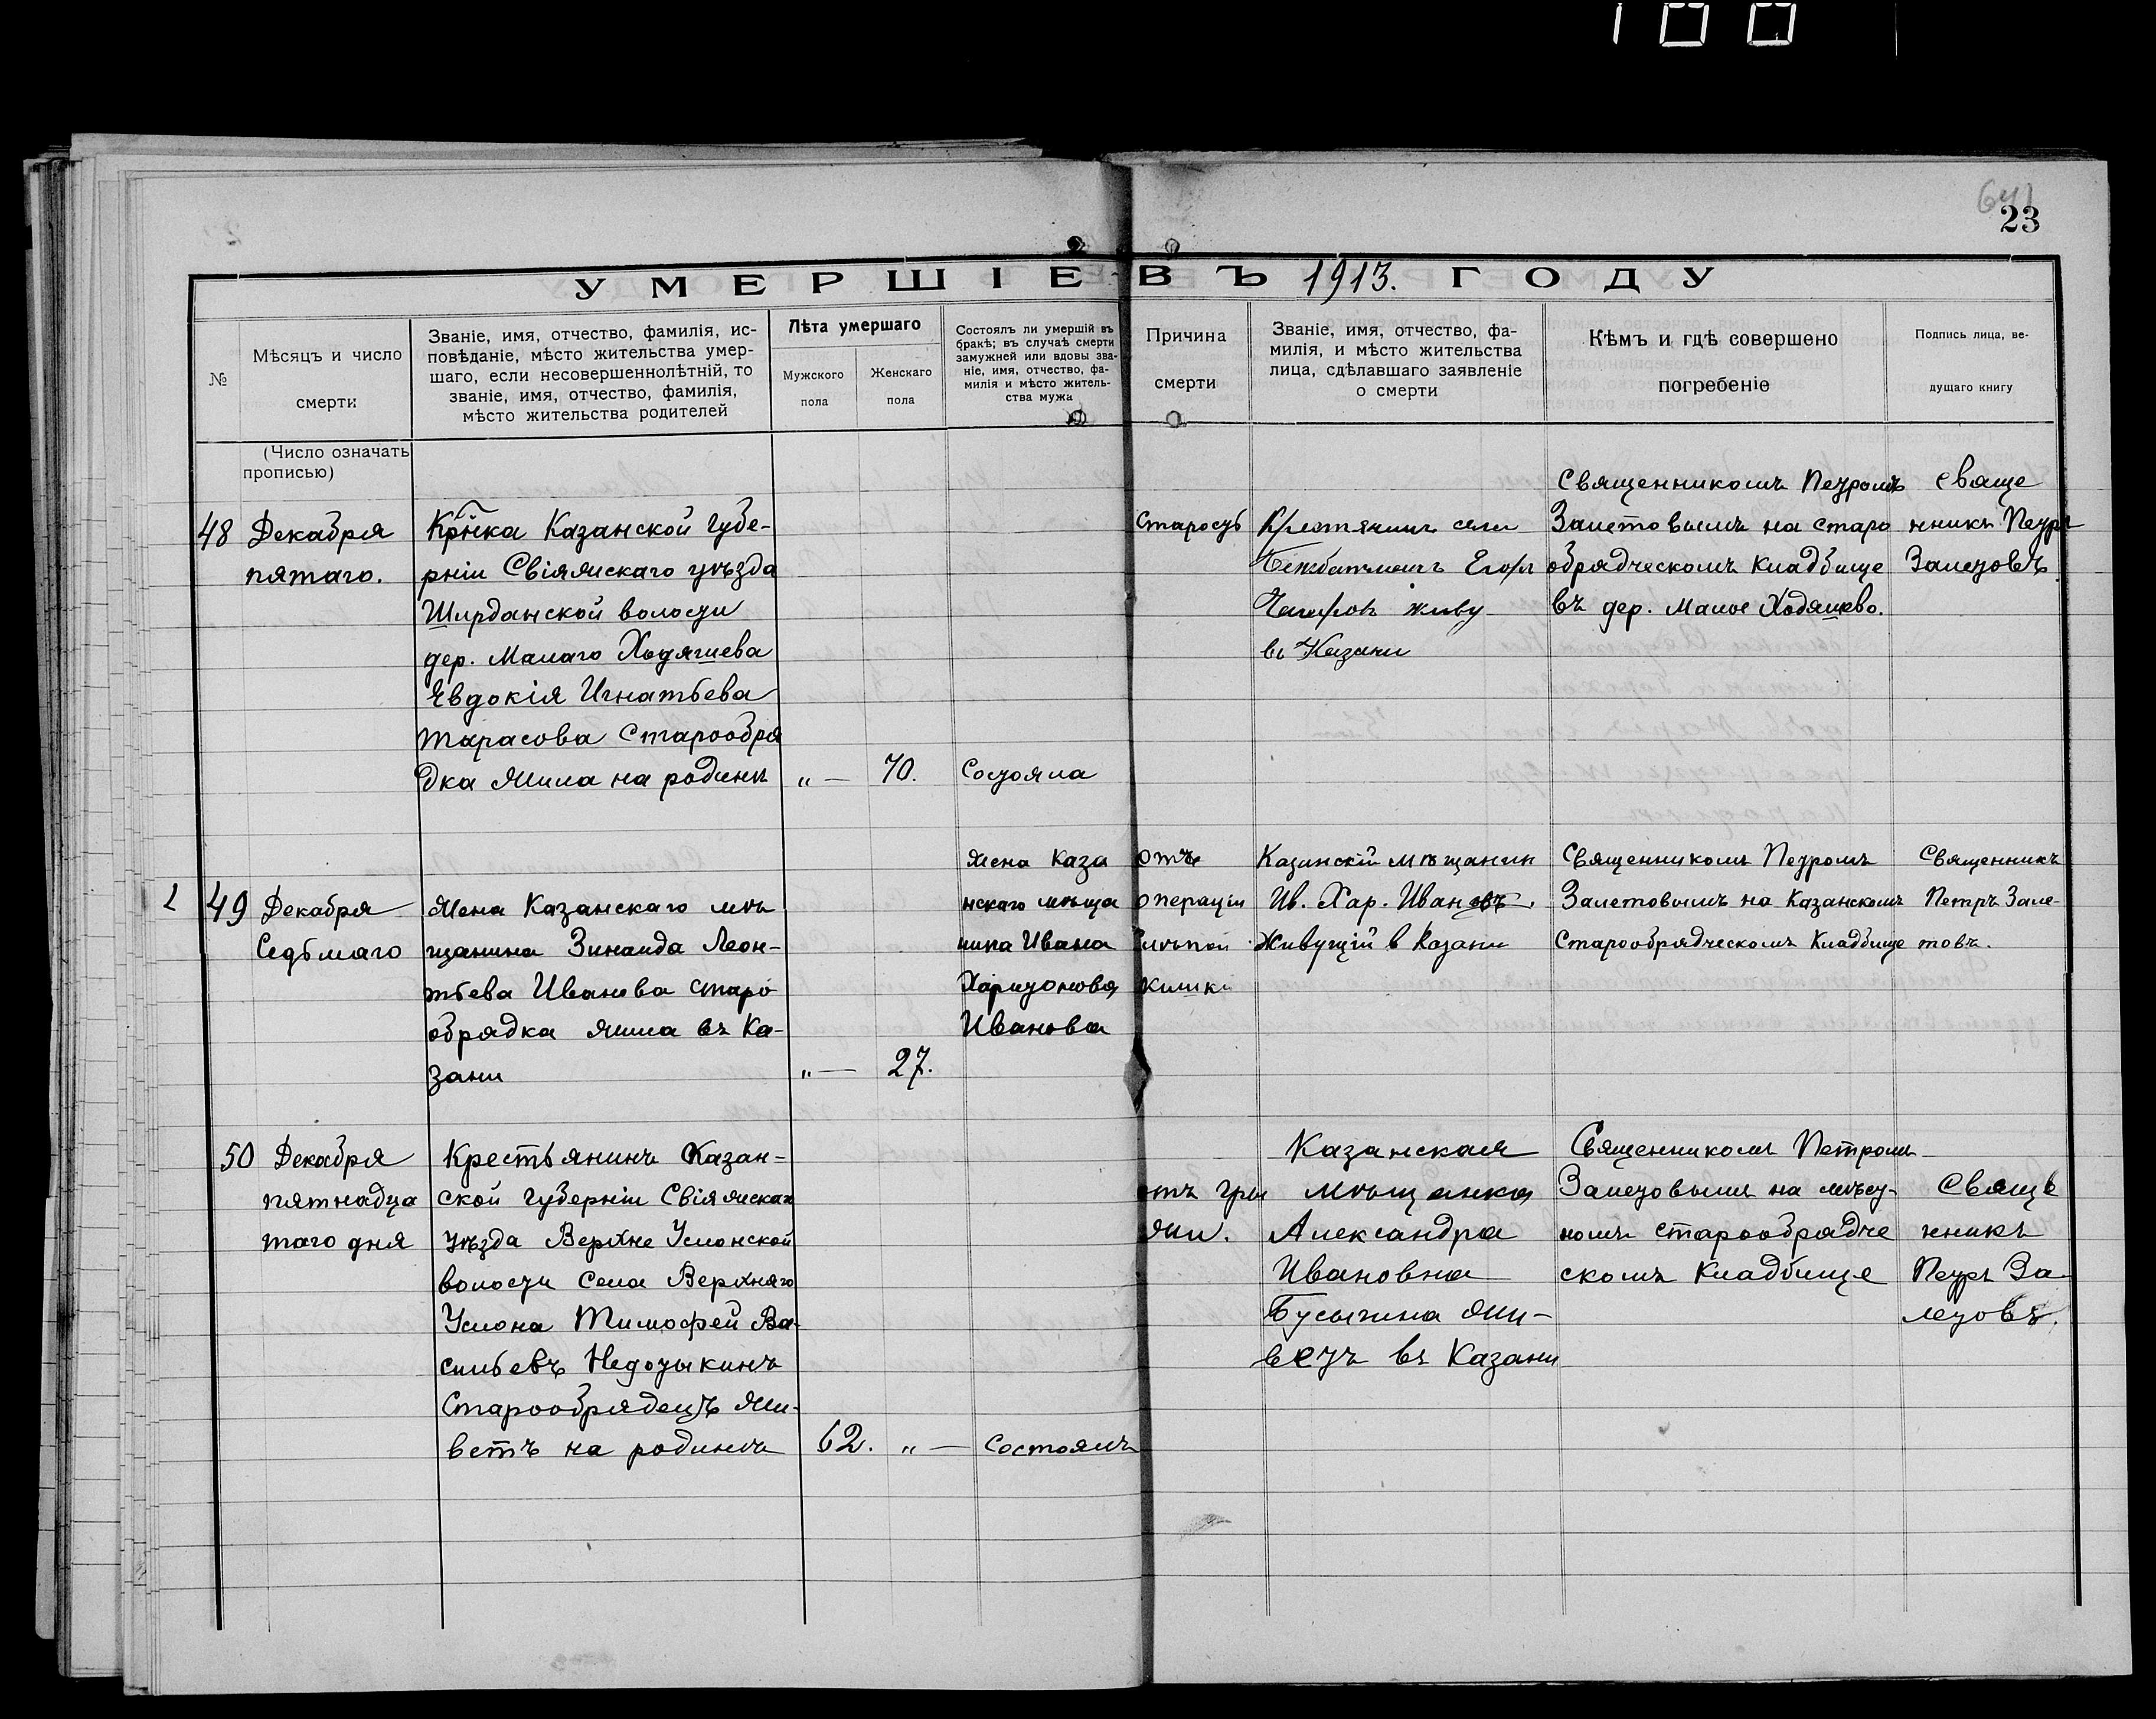 100
641
23
УМЕРШІЕ ВЪ 1913. ГОДУ
№
Мѣсяцъ и число
смерти
Званіе, имя, отчество, фамилія, ис-
повѣданіе, мѣсто жительства умер-
шаго, если несовершеннолѣтній, то
званіе, имя, отчество, фамилія,
мѣсто жительства родителей
Лѣта умершаго
Мужского
пола
Женскаго
пола
Состоялъ ли умершій въ
бракѣ; въ случаѣ смерти
замужней или вдовы зва-
ніе, имя, отчество, фа-
милія и мѣсто житель-
ства мужа
Причина
смерти
Званіе, имя, отчество, фа-
милія, и мѣсто жительства
лица, сдѣлавшаго заявленіе
о смерти
Кѣмъ и гдѣ совершено
погребеніе
Подпись лица, ве-
дущаго книгу
(Число означать
прописью)
48
Декабря
пятаго.
Крнка Казанской губе-
рніи Свіяжскаго уѣзда
Ширданской волости
дер. Малаго Ходяшева
Евдокія Игнатьева
Тарасова Старообря
дка жила на родинѣ
„ —
70.
Состояла
Старость
Крестянинъ села
Егоръ
живу
въ Казани
Священникомъ Петромъ
Залетовымъ на старо
обрядческомъ кладбище
въ дер. Малое Ходяшево.
Свяще
нникъ Петръ
Залетовъ.
49
Декабря
Седьмаго
Жена Казанскаго мѣ
щанина Зинаида Леон-
тьева Иванова старо
обрядка жила въ Ка-
зани
„ —
27.
жена Каза
нскаго мѣща
нина Ивана
Харитонова
Иванова
отъ
операціи
слѣпой
кишки
Казанскій мѣщанин
Ив. Хар. Ивановъ.
Живущій в Казани
Священникомъ Петромъ
Залетовымъ на Казанскомъ
Старообрядческомъ Кладбище
Священникъ
Петръ Зале-
товъ.
50
Декабря
пятнадца
таго дня
Крестьянинъ Казан-
ской губерніи Свіяжскаго
уѣзда Верхне Услонской
волости села Верхняго
Услона Тимофей Ва-
сильевъ Недотыкинъ
Старообрядецъ жи-
ветъ на родинѣ
62.
„ —
Состоялъ
отъ гры
жи.
Казанская
мѣщанка
Александра
Ивановна
Бусыгина жи-
ветъ въ Казани
Священникомъ Петромъ
Залетовымъ на мѣст-
номъ старообрядче
скомъ Кладбище
Свяще
нникъ
Петръ За-
летовъ.